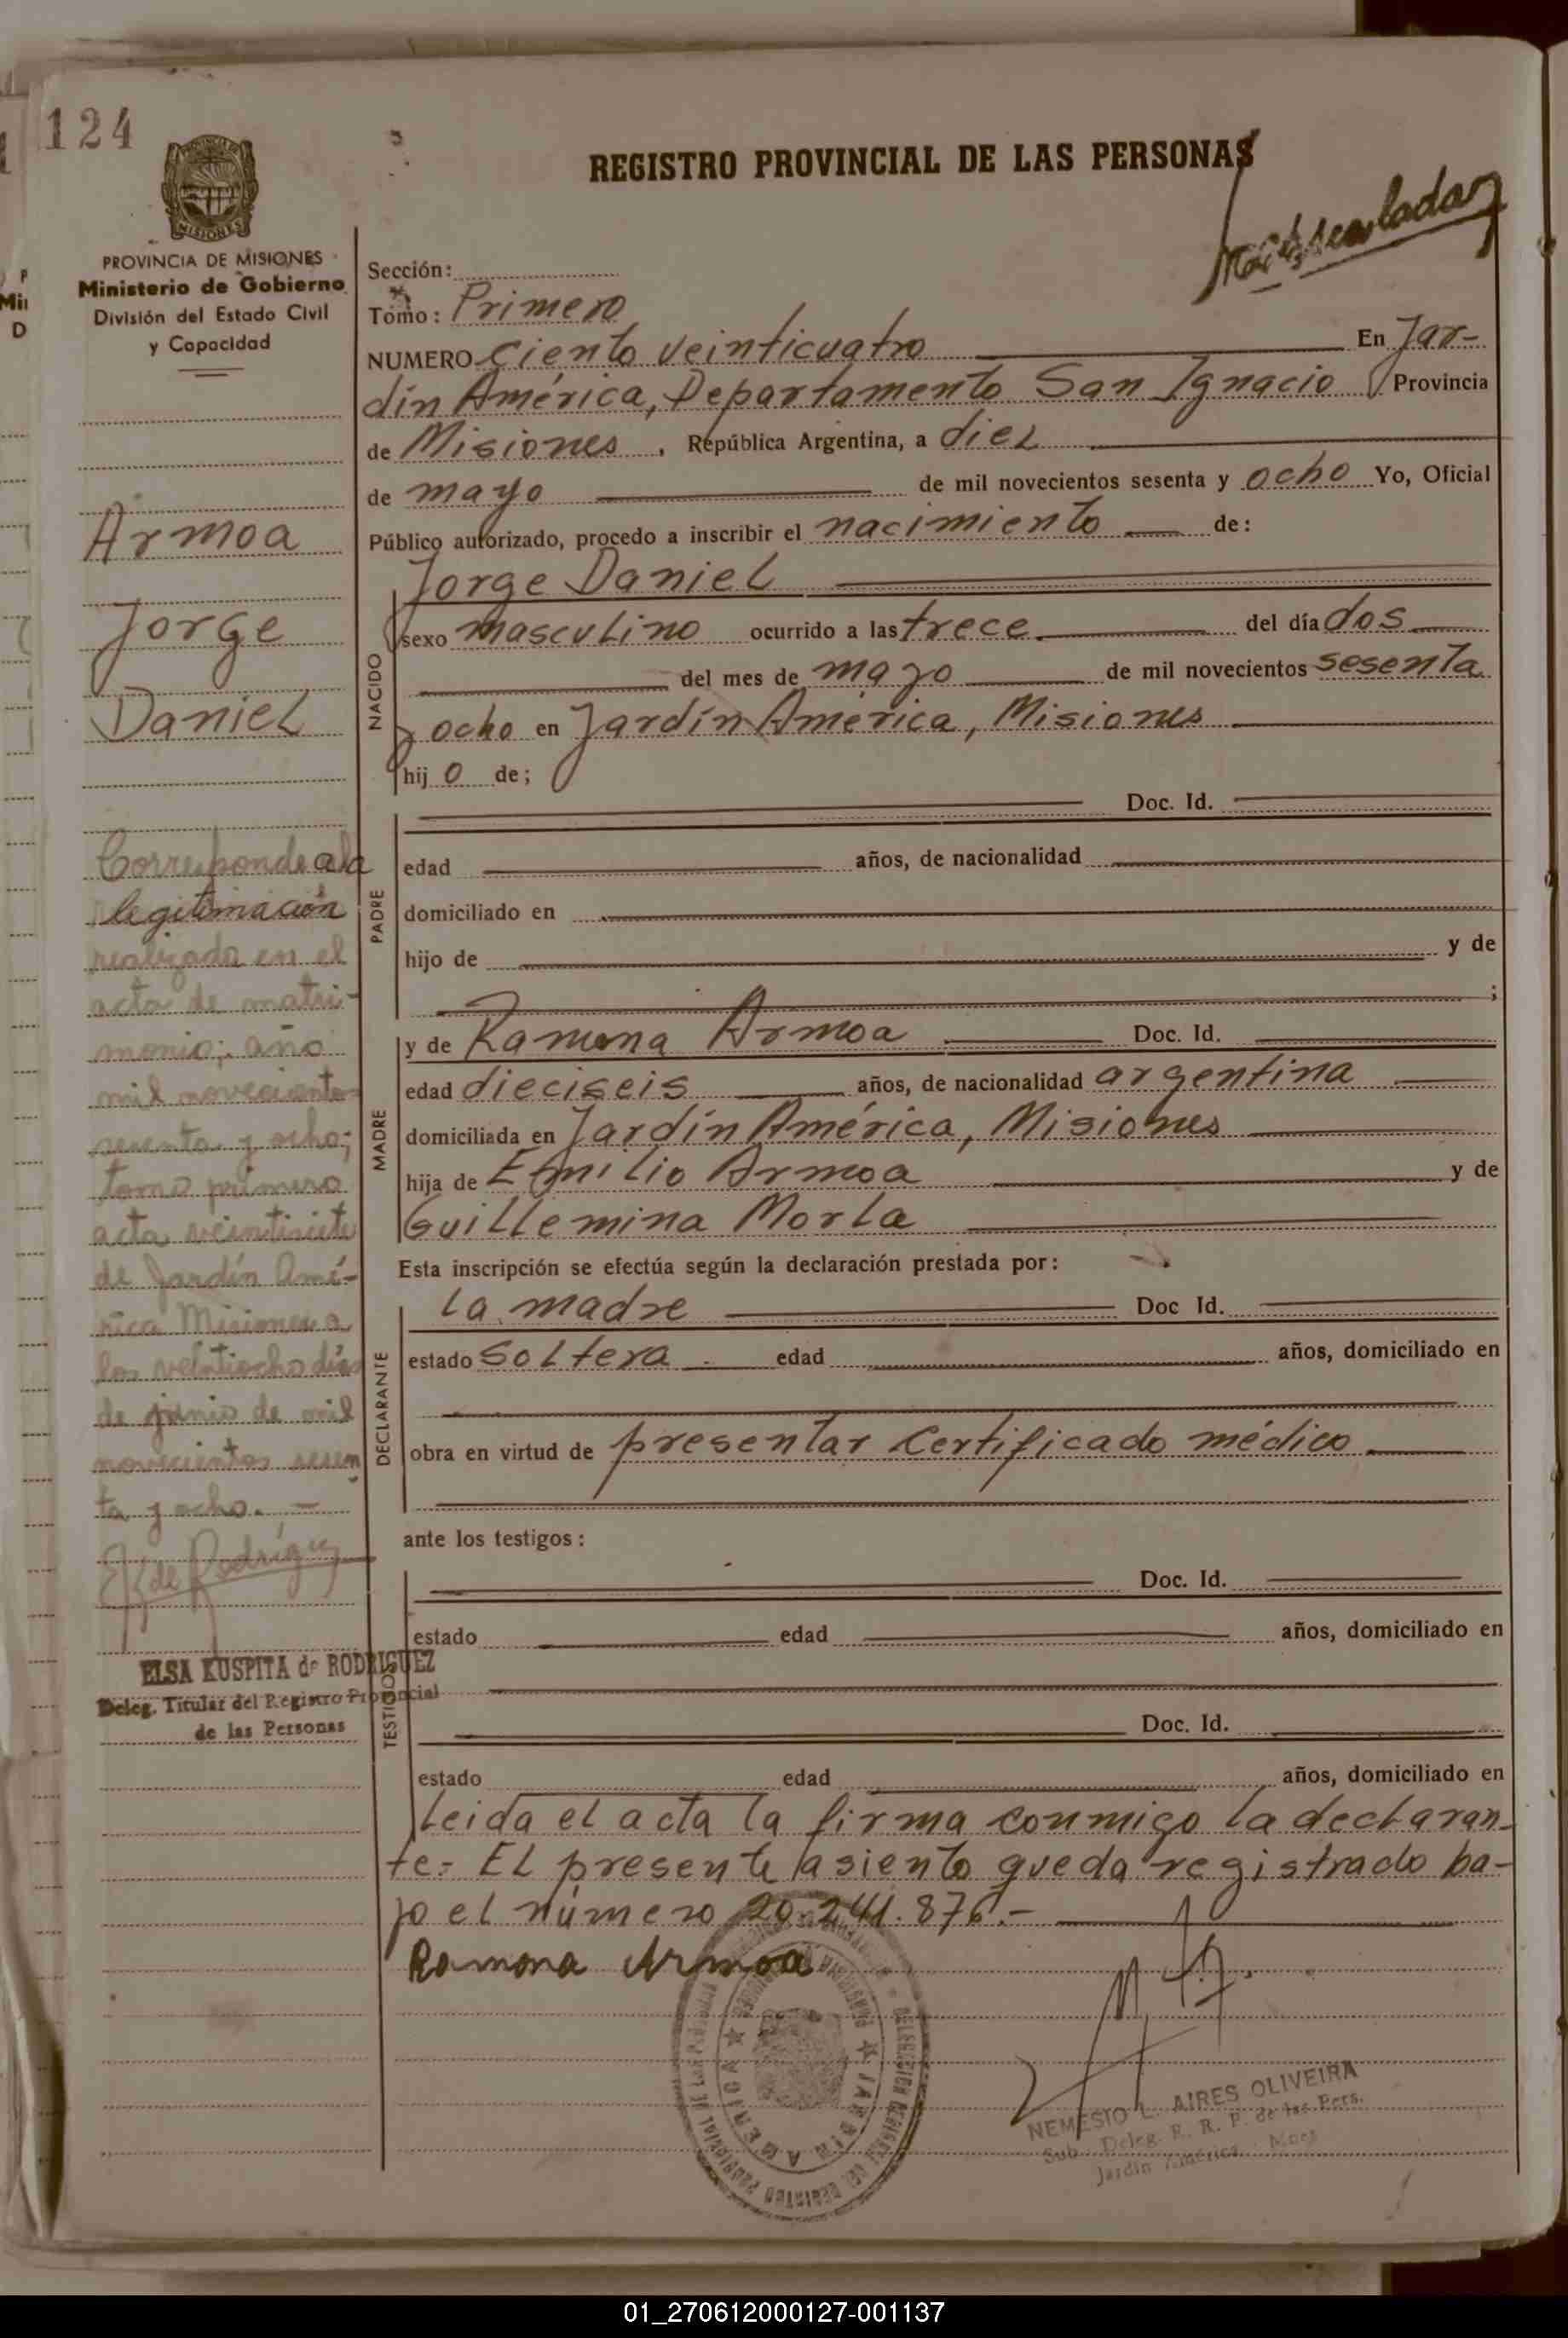 124
REGISTRO PROVINCIAL DE LAS PERSONAS
PROVINCIA DE MISIONES
Ministerio de Gobierno
División del Estado Civil
y Capacidad
Armoa
Jorge
Daniel
Corresponde a la
legitimación
realizada en el
acta de matri-
monio; año
mil novecientos
sesenta y ocho;
tomo primero
acta veintisiete
de Jardín Amé-
rica Misiones a
los veintiocho días
de junio de mil
novecientos sesen
ta y ocho. —
E K de Rodríguez
ELSA KUSPITA de RODRIGUEZ
Deleg. Titular del Registro Provincial
de las Personas
Sección:
Tomo: Primero
NUMERO Ciento veinticuatro En Jar-
dín América, Departamento San Ignacio Provincia
de Misiones, República Argentina, a diez
de mayo de mil novecientos sesenta y ocho Yo, Oficial
Público autorizado, procedo a inscribir el nacimiento de:
NACIDO
Jorge Daniel
sexo masculino ocurrido a las trece del día dos
del mes de mayo de mil novecientos sesenta
y ocho en Jardín América, Misiones
hij o de;
PADRE
Doc. Id.
edad años, de nacionalidad
domiciliado en
hijo de y de
;
MADRE
y de Ramona Armoa Doc. Id.
edad dieciseis años, de nacionalidad argentina
domiciliada en Jardín América, Misiones
hija de Emilio Armoa y de
Guillemina Morla
Esta inscripción se efectúa según la declaración prestada por:
DECLARANTE
La madre Doc Id.
estado soltera edad años, domiciliado en
obra en virtud de presentar certificado médico
ante los testigos:
TESTIGOS
Doc. Id.
estado edad años, domiciliado en
Doc. Id.
estado edad años, domiciliado en
Leida el acta la firma conmigo la declaran-
te= El presente asiento queda registrado ba-
jo el número 20.241.876.-
Ramona Armoa
JARDIN AMERICA
NEMESIO L. AIRES OLIVEIRA
Sub. Deleg. R. R. P. de las Pers.
Jardín América - Mnes
01_270612000127-001137